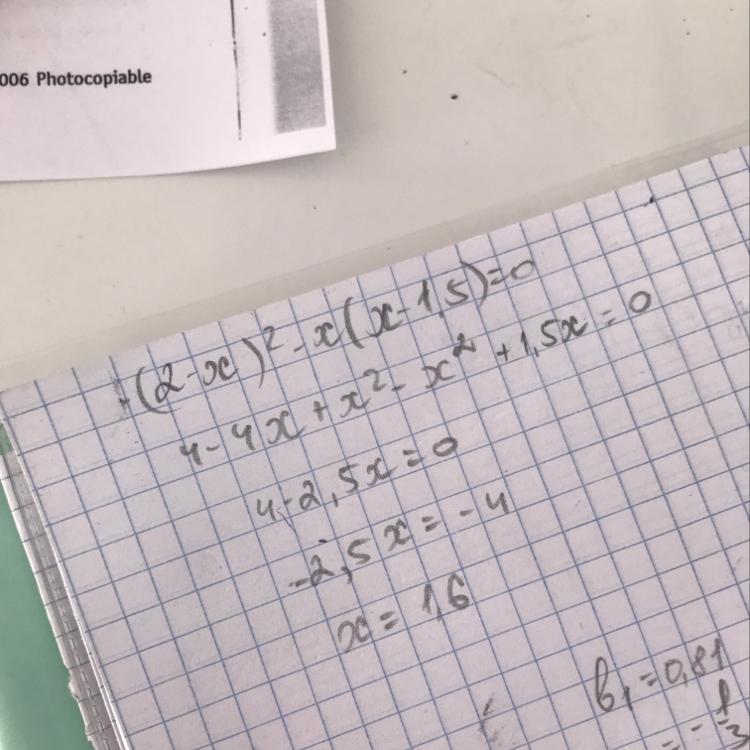 006 Photocopiable
(2-x)² - x(x-1,5)=0
4-4x+x²-x²+1,5x=0
4-2,5x=0
-2,5x=-4
x=1,6
b₁=0,81